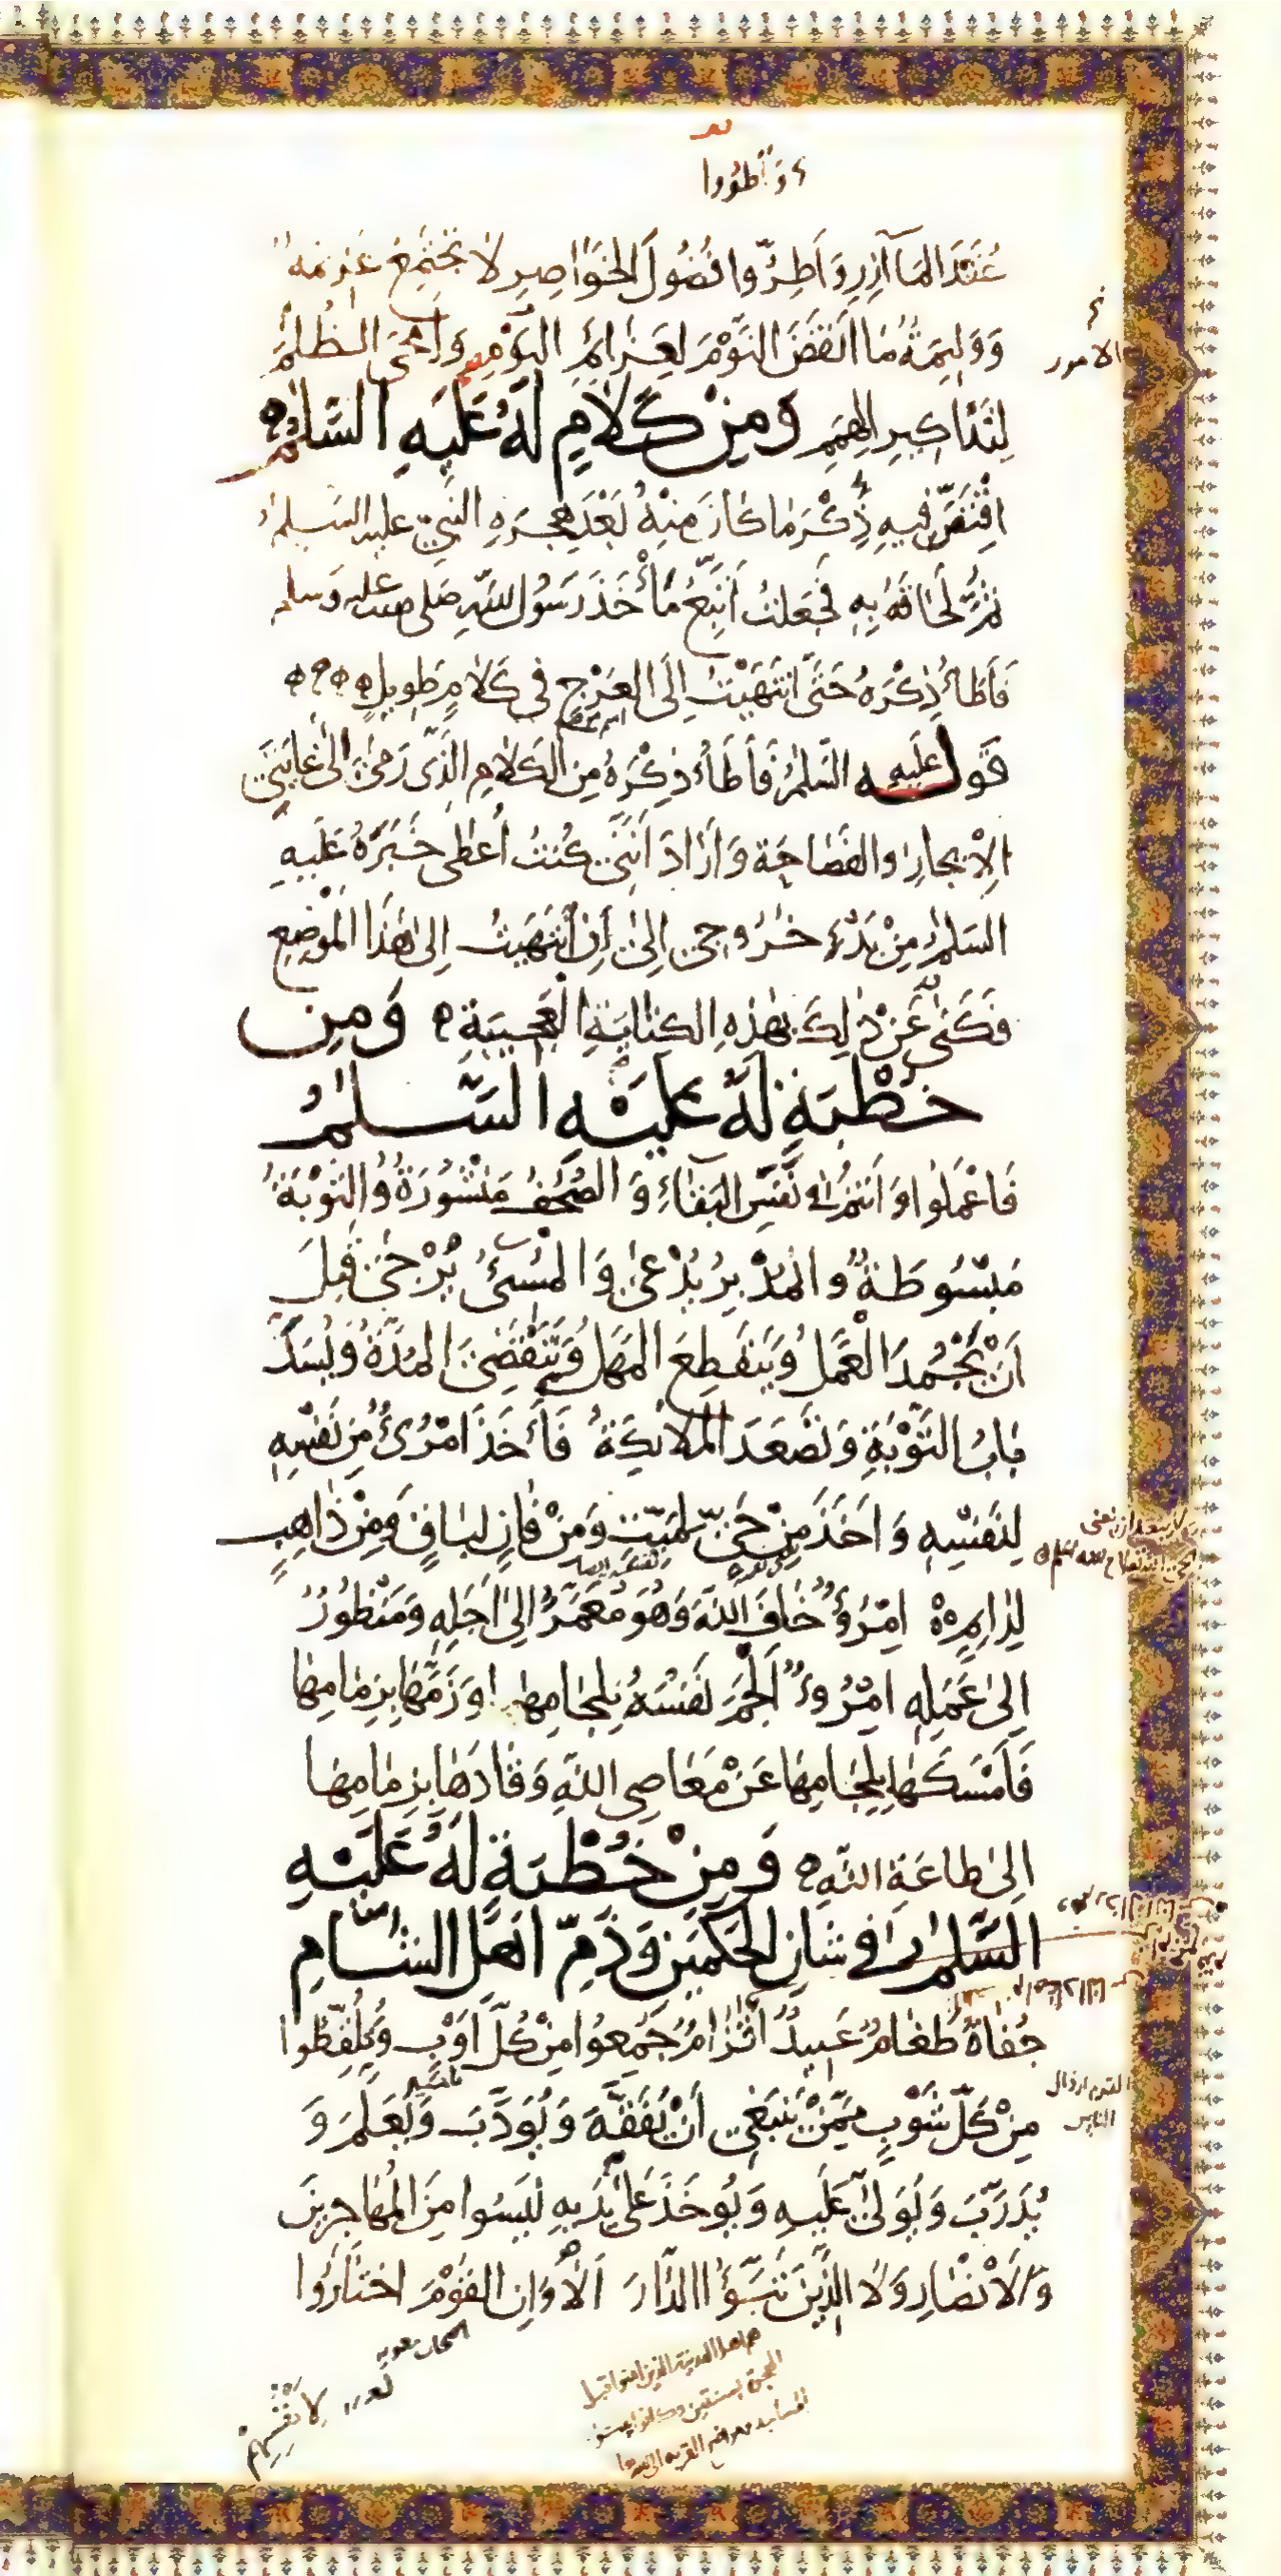 واطووا
عُقَدَ المَآزِرِ وَاَطِرُّوا فُضُولَ الخَوَاصِرِ لَا تَجْتَمِعُ عَزِيمَةٌ
وَوَلِيمَةٌ مَا اَنْقَضَ النَّوْمَ لِعَزَايِمِ اليَوْمِ وَاَمْحَى الظُّلَمَ
الامور
لِتَذَاكِيرِ الهِمَمِ وَمِنْ كَلَامٍ لَهُ عَلَيهِ السَّلَامُ
اقْتَصَّ فِيهِ ذِكْرَ مَا كَانَ مِنْهُ بَعْدَ هِجرَةِ النبيّ عليه السلم
ثُمَّ لَحَاقَهُ بِهِ فَجَعَلتُ اَتَّبِعُ مَأْخَذَ رَسُولِ اللّهِ صَلى الله عليه وَسلم
فَاَطَأُ ذِكْرَهُ حَتَّى انتَهَيْتُ اِلَى العَرْجِ فى كَلَامٍ طَوِيلٍ
قَولُه عليه السَّلمُ فَاَطَأُ ذِكْرَهُ مِنَ الكَلَامِ الَّذِى رَمَى اِلىٰ غَايَتَىِ
الاِيجَازِ وَالفَصَاحَةِ وَاَرَادَ اَنَّنِى كُنتُ اُعطَى خَبَرَهُ عَلَيهِ
السَلمُ مِنْ بَدْءِ خُرُوجِى اِلىٰ اَنِ انْتَهَيتُ اِلىٰ هٰذَا المَوْضِعِ
فَكَنَى عَنْ ذٰلِكَ بِهٰذِهِ الكنَايَةِ العَجِيبَةِ وَمِن
خُطْبَةٍ لَهُ عَلَيْهِ السَّلمُ
فَاعْمَلُوا وَاَنتمُ فِى نَفَسِ البَقَاءِ وَالصُّحُفُ مَنْشُورَةٌ وَالتَوْبَةُ
مَبْسُوطَةٌ وَالمُدْبِرُ يُدْعىٰ وَالمُسِىءُ يُرْجىٰ قَبلَ
اَنْ يَجْمُدَ الْعَمَلُ وَيَنقَطِعَ المَهَلُ وَتَنْقَضِىَ المُدَّةُ وَيُسَدَّ
بَابُ التَّوْبَةِ وَتَصْعَدَ المَلَائكَةُ فَأَخَذَ امْرُئٌ مِن نَفْسِهِ
لِنَفسِهِ وَاَخَذَ مِنْ حَىٍّ لِمَيّتٍ وَمِنْ فَانٍ لِبَاقٍ وَمِنْ ذَاهِبٍ
لِدَايِمٍ امْرُؤٌ خَافَ اللّهَ وَهُوَ مُعَمَّرٌ اِلىٰ اَجَلِهِ وَمَنْظُورٌ
اِلىٰ عَمَلِهِ امْرُوءٌ اَلْجَمَ نَفْسَهُ بِلِجَامِهَا وَزَمَّهَا بِزِمَامِهَا
فَاَمْسَكَهَا بِلِجَامِهَا عَنْ مَعَاصِى اللّهِ وَقَادَهَا بِزِمَامِهَا
اِلىٰ طَاعَةِ اللّهِ وَمِنْ خُطْبَةٍ لَهُ عَلَيْهِ
السَّلمُ فى شَانِ الحَكَمَينِ وَذَمِّ اَهْلِ الشَّامِ
جُفَاةٌ طَغَامٌ عَبِيدٌ اَقْزَامٌ جُمِعُوا مِنْ كُلِّ اَوْبٍ وَتُلُقِّطُوا
القوم ارذال
الناس
مِنْ كُلِّ شَوْبٍ مِمَّنْ يَنبَغِى اَنْ يُفَقَّهَ وَيُؤَدَّبَ وَيُعَلَّمَ وَ
يُدَرَّبَ وَيُوَلىّٰ عَلَيهِ وَيُؤخَذَ عَلىٰ يَدَيهِ لَيسُوا مِنَ المُهَاجِرِينَ
وَالاَنْصَارِ وَلَا الَّذِينَ تَبَوَّؤُا الدَّارَ اَلَا وَاِنَّ القَوْمَ اخْتَارُوا
اصحاب معوية
هم اهل المدينة الذين امنوا قبل
الهجرة بسنتين
لِاَنْفُسِهِمْ